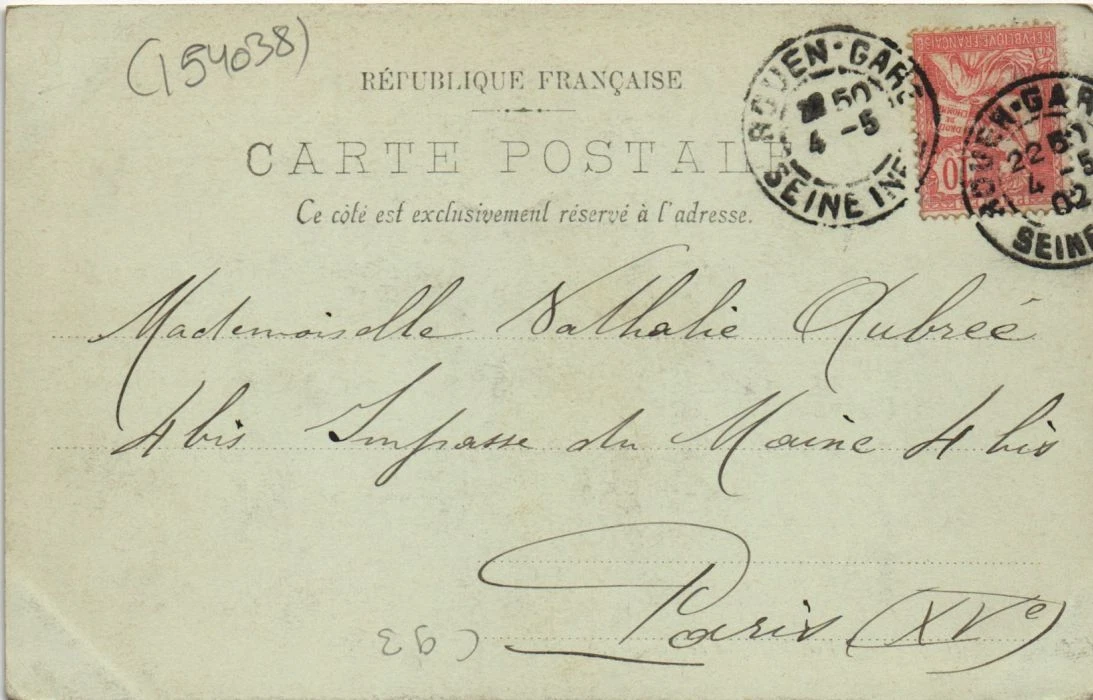 (154038)
RÉPUBLIQUE FRANÇAISE
CARTE POSTALE
Ce côté est exclusivement réservé à l'adresse.
ROUEN-GARE
50
4 -5
SEINE INF
RÉPUBLIQUE FRANÇAISE
DROITS
DE
L'HOMME
10
ROUEN-GAR
22 50
4 -5
02
SEINE
Mademoiselle Nathalie Aubrée
4 bis Impasse du Maine 4 bis
Paris (XVe)